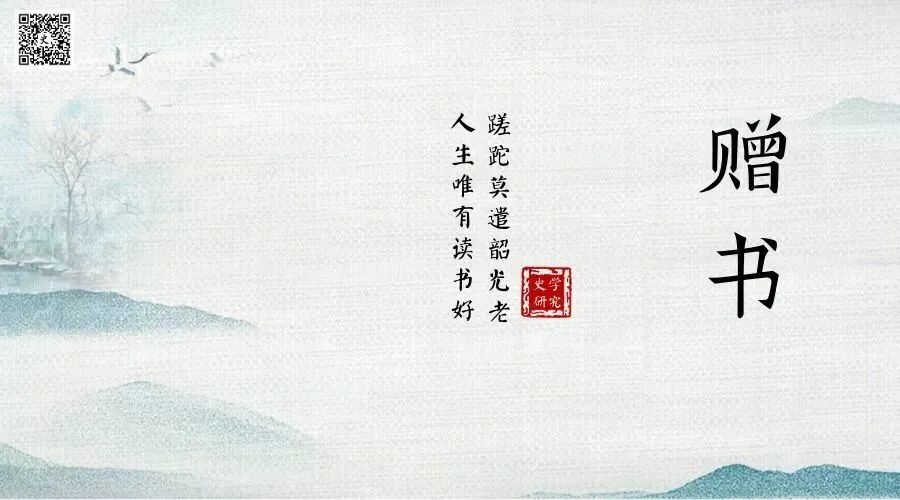 赠书
蹉跎莫遣韶光老
人生唯有读书好
学史
究研
史